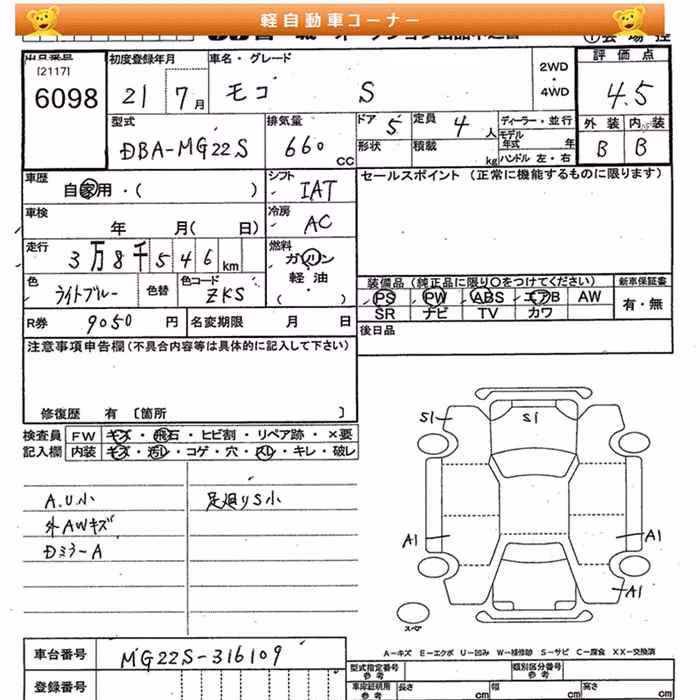 軽自動車コーナー
[2117]
6098
初度登録年月
21 7月
車名・グレード
モコ S
2WD
・
4WD
評価点
4.5
外装 内装
B B
型式
DBA-MG22S
排気量
660 CC
ドア 5
定員 4人
形状
積載 kg
ディーラー・並行
モデル年式 年
ハンドル 左・右
車歴
自家用・( )
シフト
IAT
セールスポイント (正常に機能するものに限ります)
車検
年 月( 日)
冷房
AC
走行
3万8千546km
燃料
ガソリン
軽・油
・( )
色
ライトブルー
色替
色コード
ZKS
装備品 (純正品に限り○をつけてください)
新車保証書
PS PW ABS エアB AW
有・無
SR ナビ TV カワ
R券 9050 円
名変期限 月 日
後日品
注意事項申告欄(不具合内容等は具体的に記入して下さい)
修復歴 有 [箇所 ]
検査員
記入欄
FW キズ・飛石・ヒビ割・リペア跡・×要
内装 キズ・汚レ・コゲ・穴・スレ・キレ・破レ
A.U小
外AWキズ
Dミラ-A
足廻りS小
S1
S1
A1
A1
A1
スペア
A-キズ E-エクボ U-凹み W-補修跡 S-サビ C-腐食 XX-交換済
車台番号
MG22S-316109
登録番号
型式指定番号
類別区分番号
車庫証明用
参考
長さ cm
幅 cm
高さ cm